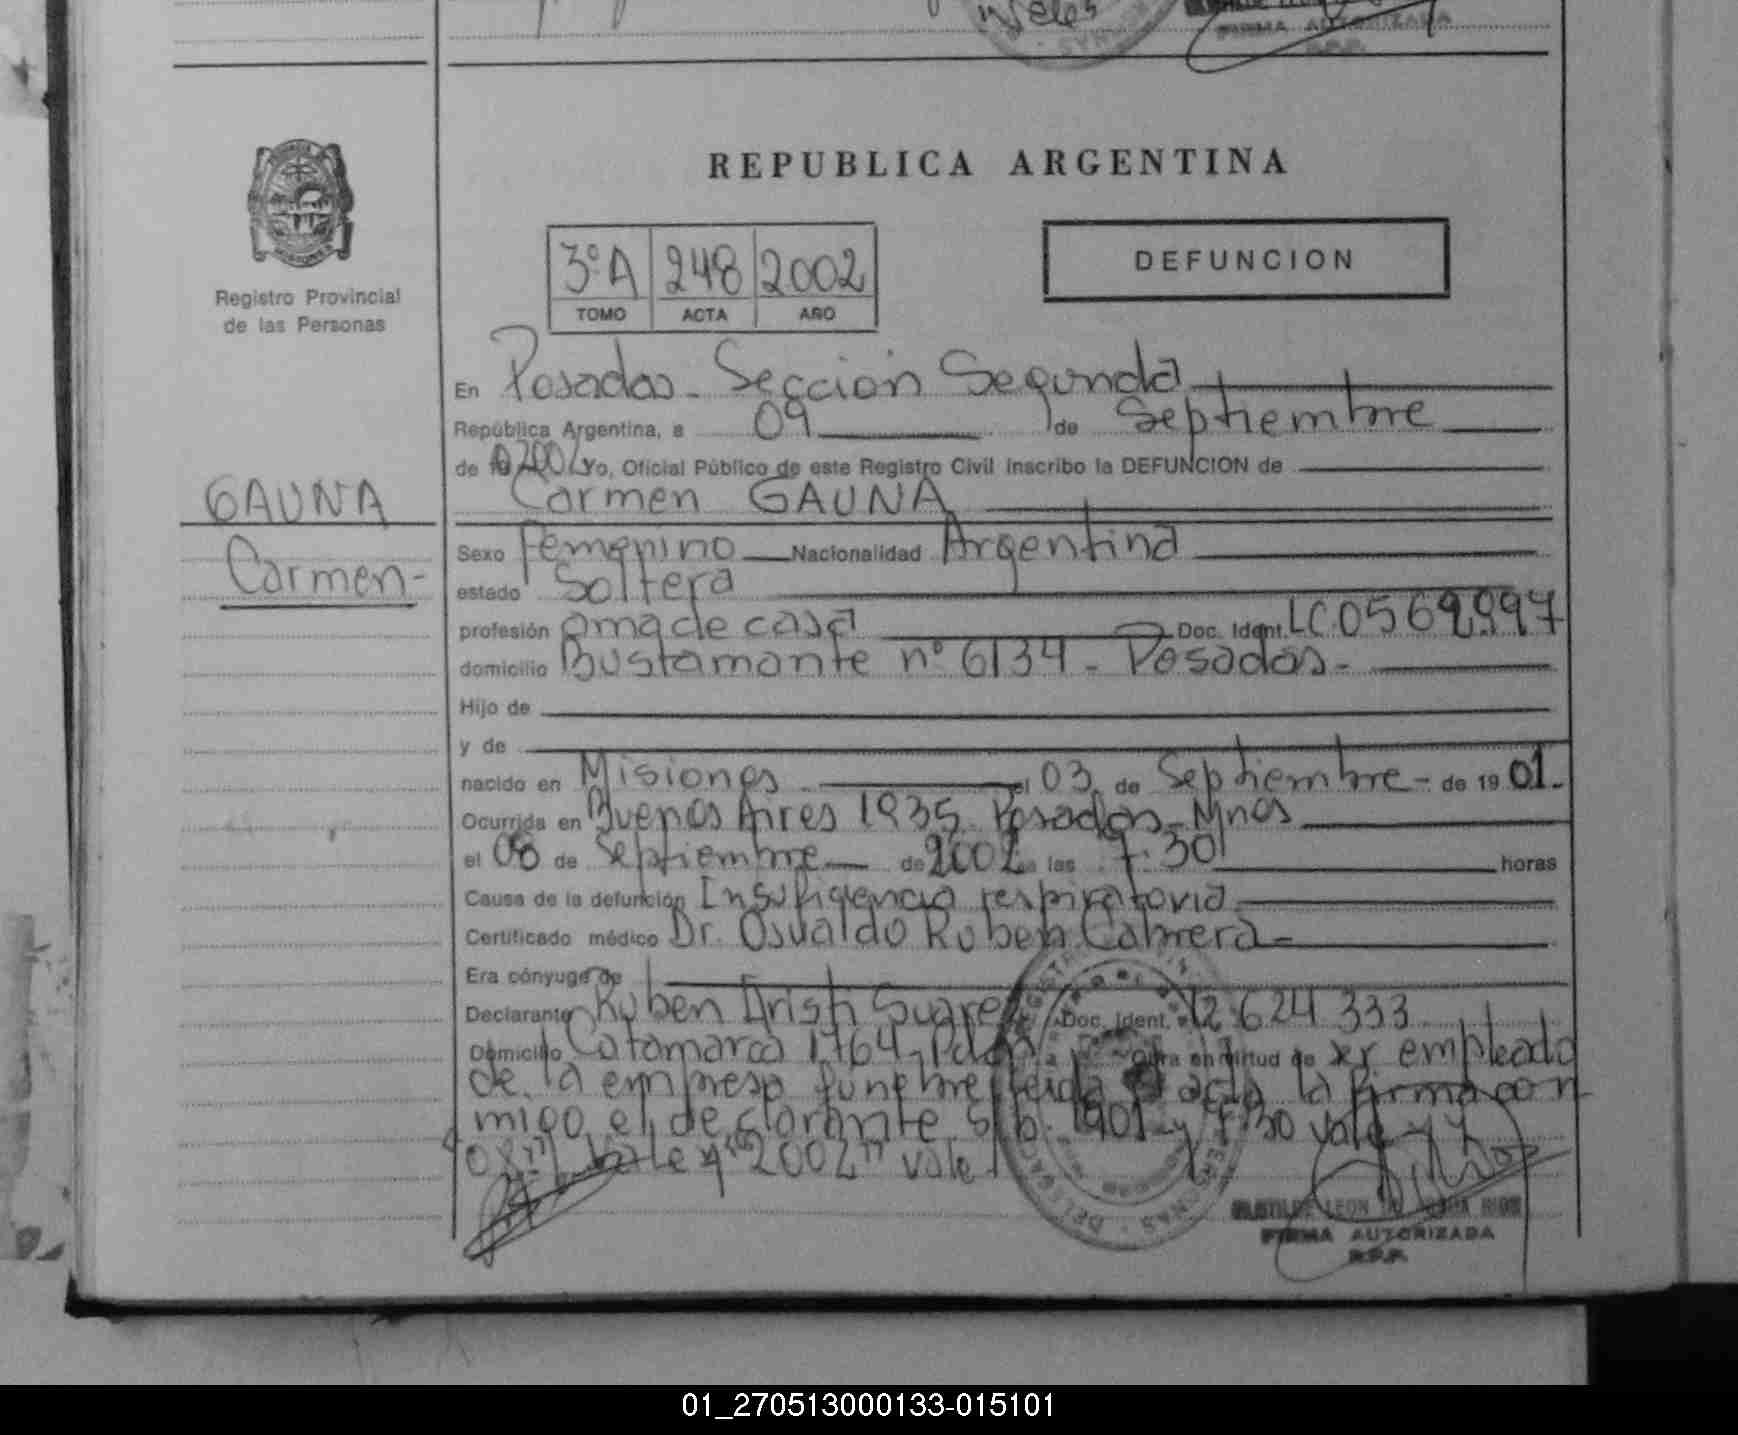 FIRMA AUTORIZADA
REPUBLICA ARGENTINA
3ºA 248 2002
TOMO ACTA AÑO
DEFUNCION
Registro Provincial
de las Personas
En Posadas - Sección Segunda
República Argentina, a 09 de Septiembre
de 2002 Yo, Oficial Público de este Registro Civil inscribo la DEFUNCION de
GAUNA
Carmen -
Carmen GAUNA
Sexo Femenino Nacionalidad Argentina
estado Soltera
profesión ama de casa Doc. Ident. LC 0569997
domicilio Bustamante nº 6134 - Posadas -
Hijo de
y de
nacido en Misiones el 03 de Septiembre - de 19 01.
Ocurrida en Buenos Aires 1935 Posadas - Mnes
el 08 de Septiembre de 2002 a las 7:30 horas
Causa de la defunción Insuficiencia respiratoria
Certificado médico Dr. Osvaldo Ruben Cabrera -
Era cónyuge de
Declarante Ruben Aristi Suarez Doc. Ident. 12 624 333
Domicilio Catamarca 1764, Pdas obra en virtud de ser empleado
de la empresa funebre leida el acta la firma con
migo el declarante s/b 1901 y 7:30 vale y
"08" vale y "2002" vale
LEON RIOS
FIRMA AUTORIZADA
R.P.P.
01_270513000133-015101